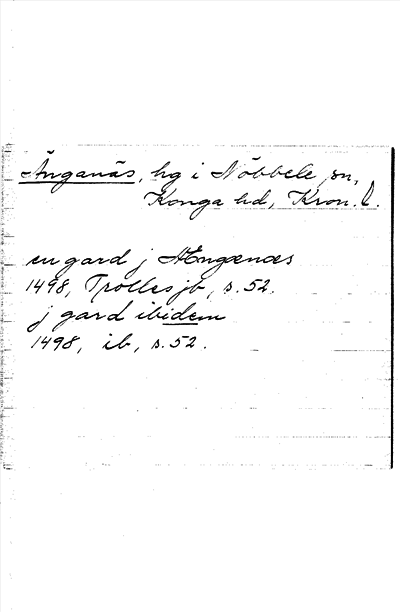 Änganäs, hg i Nöbbele sn,
Konga hd, Kron. l.
en gard j Ængenæs
1498, Trolles jb, s. 52.
j gard ibidem
1498, ib, s. 52.